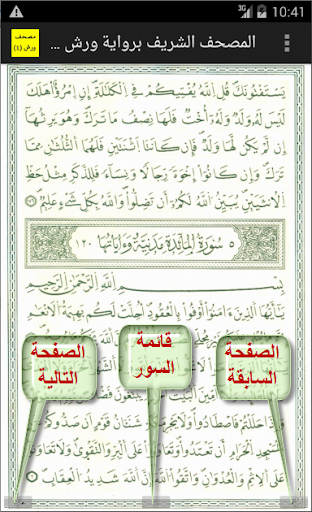 10:41
3G
مصحف
ورش (1)
المصحف الشريف برواية ورش ...
يَسْتَفْتُونَكَ قُلِ اللَّهُ يُفْتِيكُمْ فِي الْكَلَالَةِ إِنِ امْرُؤٌا هَلَكَ
لَيْسَ لَهُ وَلَدٌ وَلَهُ أُخْتٌ فَلَهَا نِصْفُ مَا تَرَكَ وَهُوَ يَرِثُهَا
إِن لَّمْ يَكُن لَّهَا وَلَدٌ فَإِن كَانَتَا اثْنَتَيْنِ فَلَهُمَا الثُّلُثَانِ مِمَّا
تَرَكَ وَإِن كَانُوا إِخْوَةً رِّجَالًا وَنِسَاءً فَلِلذَّكَرِ مِثْلُ حَظِّ
الْأُنثَيَيْنِ يُبَيِّنُ اللَّهُ لَكُمْ أَن تَضِلُّوا وَاللَّهُ بِكُلِّ شَيْءٍ عَلِيمٌ
٥ سُورَةُ الْمَائِدَةِ مَدَنِيَّةٌ وَءَايَاتُهَا ١٢٠
بِسْمِ اللَّهِ الرَّحْمَٰنِ الرَّحِيمِ
يَا أَيُّهَا الَّذِينَ ءَامَنُوا أَوْفُوا بِالْعُقُودِ أُحِلَّتْ لَكُم بَهِيمَةُ
الصفحة
السابقة
قائمة
السور
الصفحة
التالية
حَلَلْتُمْ فَاصْطَادُوا وَلَا
الْمَسْجِدِ الْحَرَامِ أَن تَعْتَدُوا وَتَعَاوَنُوا عَلَى الْبِرِّ وَالتَّقْوَى وَلَا تَعَاوَنُوا
عَلَى الْإِثْمِ وَالْعُدْوَانِ وَاتَّقُوا اللَّهَ إِنَّ اللَّهَ شَدِيدُ الْعِقَابِ